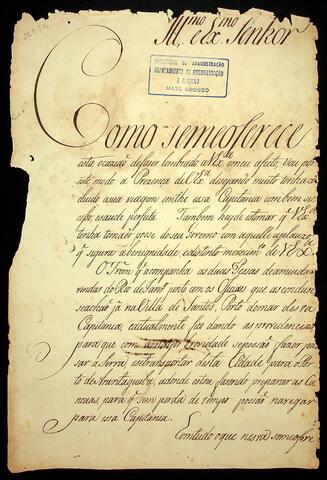 Ill.mo e Ex.mo Senhor
SECRETARIA DE ADMINISTRAÇÃO
DEPARTAMENTO DE DOCUMENTAÇÃO
MATO GROSSO
Como se me offerece
esta ocazião de fazer lembrado a V.Ex.a o meu afecto, vou por
este modo á Prezença de V.Ex.a dezejando muito tenha
sua viagem a essa Capitania com bom su-
cesso, e saude perfeita. Tambem hey de estimar q. V.Ex.a
tenha tomado posse do seu Governo com aquelle aplauzo
q. segura a benignidade, e distinto merecim.to de V.Ex.a
O Trem q. acompanha as duas Pessas de
do Rio de Jan.ro junto com os Officiaes que as conduz
se achão já na Villa de Santos, Porto de mar desta
Capitania, e actualmente fico dando as providencias
para que com brevidade se possão fazer pas-
sar a Serra, e transportar desta Cidade para o Por-
to de Araritaguaba, adonde estou fazendo preparar as Ca-
noas, para q. sem perda de tempo possão navegar
para essa Capitania.
Comtudo o que nesta se me offere